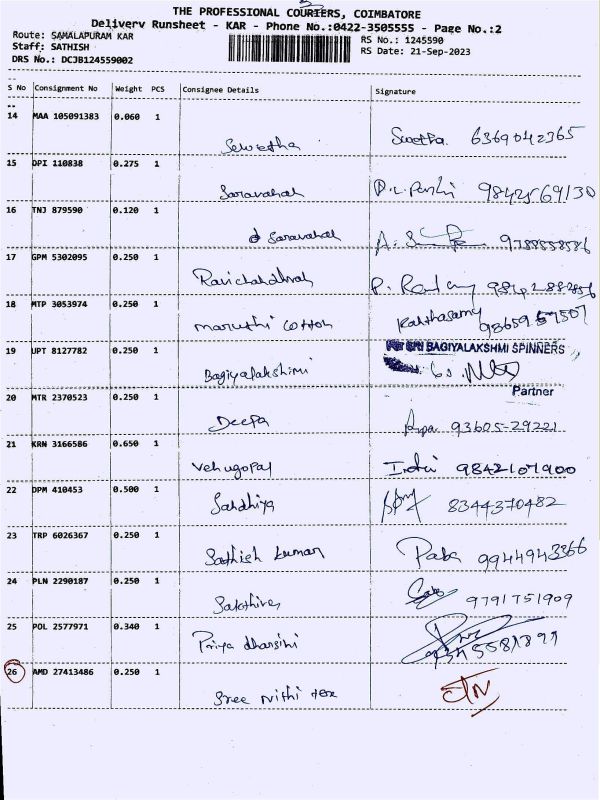 THE PROFESSIONAL COURIERS, COIMBATORE
Delivery Runsheet - KAR - Phone No.:0422-3505555 - Page No.:2
Route: SAMALAPURAM KAR
RS No.: 1245590
Staff: SATHISH
RS Date: 21-Sep-2023
DRS No.: DCJB124559002
S No Consignment No Weight PCS Consignee Details Signature
14 MAA 105091383 0.060 1
Swetha Swetha 6369042365
15 DPI 110838 0.275 1
Saravanan 9842569130
16 TNJ 879590 0.120 1
Saravanan 9788558586
17 GPM 5302095 0.250 1
Ravichandran
18 MTP 3053974 0.250 1
Maruthi Cotton Kanthasamy
19 UPT 8127782 0.250 1
For SRI BAGIYALAKSHMI SPINNERS
Bagiyalakshimi
Partner
20 MTR 2370523 0.250 1
Deepa 93605-29221
21 KRN 3166586 0.650 1
Venugopal 9842107900
22 DPM 410453 0.500 1
Sandhiya 8344370482
23 TRP 6026367 0.250 1
Sathish kuman 9944943366
24 PLN 2290187 0.250 1
9791751909
25 POL 2577971 0.340 1
Priya dharsini
26 AMD 27413486 0.250 1
Sree Nithi tex